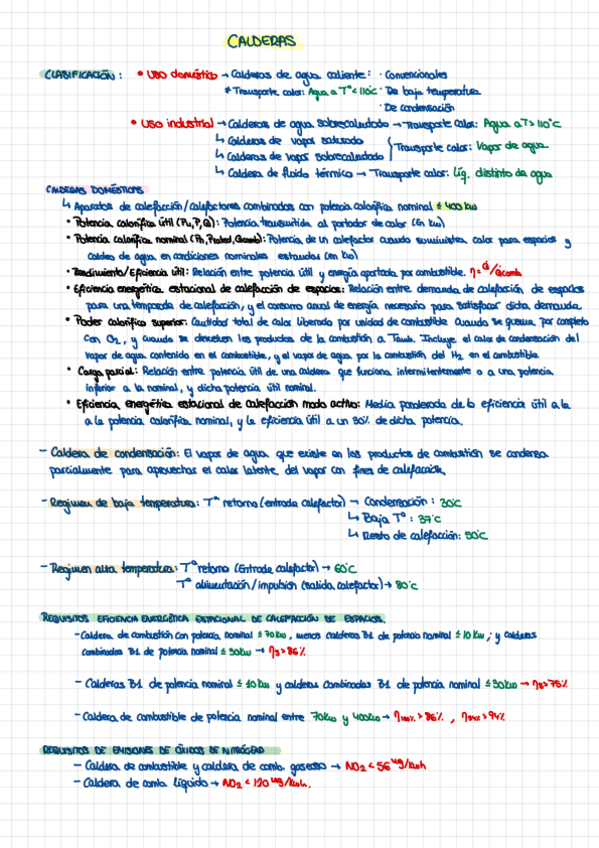 CALDERAS
CLASIFICACIÓN: • USO doméstico → Calderas de agua caliente: · Convencionales
* Transporte calor: Agua a Tª < 110°C · De baja temperatura
· De condensación
• USO industrial → Calderas de agua sobrecalentada → Transporte calor: Agua a T > 110°C
↳ Calderas de vapor saturado
Transporte calor: Vapor de agua
↳ Calderas de vapor sobrecalentado
↳ Caldera de fluido térmico → Transporte calor: Líq. distinto de agua
CALDERAS DOMÉSTICAS
↳ Aparatos de calefacción/calefactores combinados con potencia calorífica nominal ≤ 400 kW
• Potencia calorífica útil (Pu, P, Q): Potencia transmitida al portador de calor (En kW)
• Potencia calorífica nominal (Ph, Prated, Qcomb): Potencia de un calefactor cuando suministra calor para espacios y
caldeo de agua en condiciones nominales estandar (en kW)
• Rendimiento/Eficiencia útil: Relación entre potencia útil y energía aportada por combustible. η = Q/Qcomb
• Eficiencia energética estacional de calefacción de espacios: Relación entre demanda de calefacción de espacios
para una temporada de calefacción, y el consumo anual de energía necesario para satisfacer dicha demanda.
• Poder calorífico superior: Cantidad total de calor liberado por unidad de combustible cuando se quema por completo
con O2, y cuando se devuelven los productos de la combustión a Tamb. Incluye el calor de condensación del
vapor de agua contenido en el combustible, y el vapor de agua por la combustión del H2 en el combustible.
• Carga parcial: Relación entre potencia útil de una caldera que funciona intermitentemente o a una potencia
inferior a la nominal, y dicha potencia útil nominal.
• Eficiencia energética estacional de calefacción modo activo: Media ponderada de la eficiencia útil a la
a la potencia calorífica nominal, y la eficiencia útil a un 30% de dicha potencia.
- Caldera de condensación: El vapor de agua que existe en los productos de combustión se condensa
parcialmente para aprovechar el calor latente del vapor con fines de calefacción.
- Regimen de baja temperatura: Tª retorno (entrada calefactor) → Condensación: 30°C
↳ Baja Tª: 37°C
↳ Resto de calefacción: 50°C
- Regimen alta temperatura: Tª retorno (Entrada calefactor) → 60°C
Tª alimentación/impulsión (salida calefactor) → 80°C
REQUISITOS EFICIENCIA ENERGÉTICA ESTACIONAL DE CALEFACCIÓN DE ESPACIOS.
- Caldera de combustión con potencia nominal ≤ 70kW, menos calderas B1 de potencia nominal ≤ 10 kW, y calderas
combinadas B1 de potencia nominal ≤ 30kW → ηs > 86%
- Calderas B1 de potencia nominal ≤ 10kW y calderas combinadas B1 de potencia nominal ≤ 30kW → ηs > 75%
- Caldera de combustible de potencia nominal entre 70kW y 400kW → η100% > 86%, η30% > 94%
REQUISITOS DE EMISIONES DE ÓXIDOS DE NITRÓGENO
- Caldera de combustible y caldera de comb. gaseoso → NO2 < 56 mg/kWh
- Caldera de comb. líquido → NO2 < 120 mg/kWh.